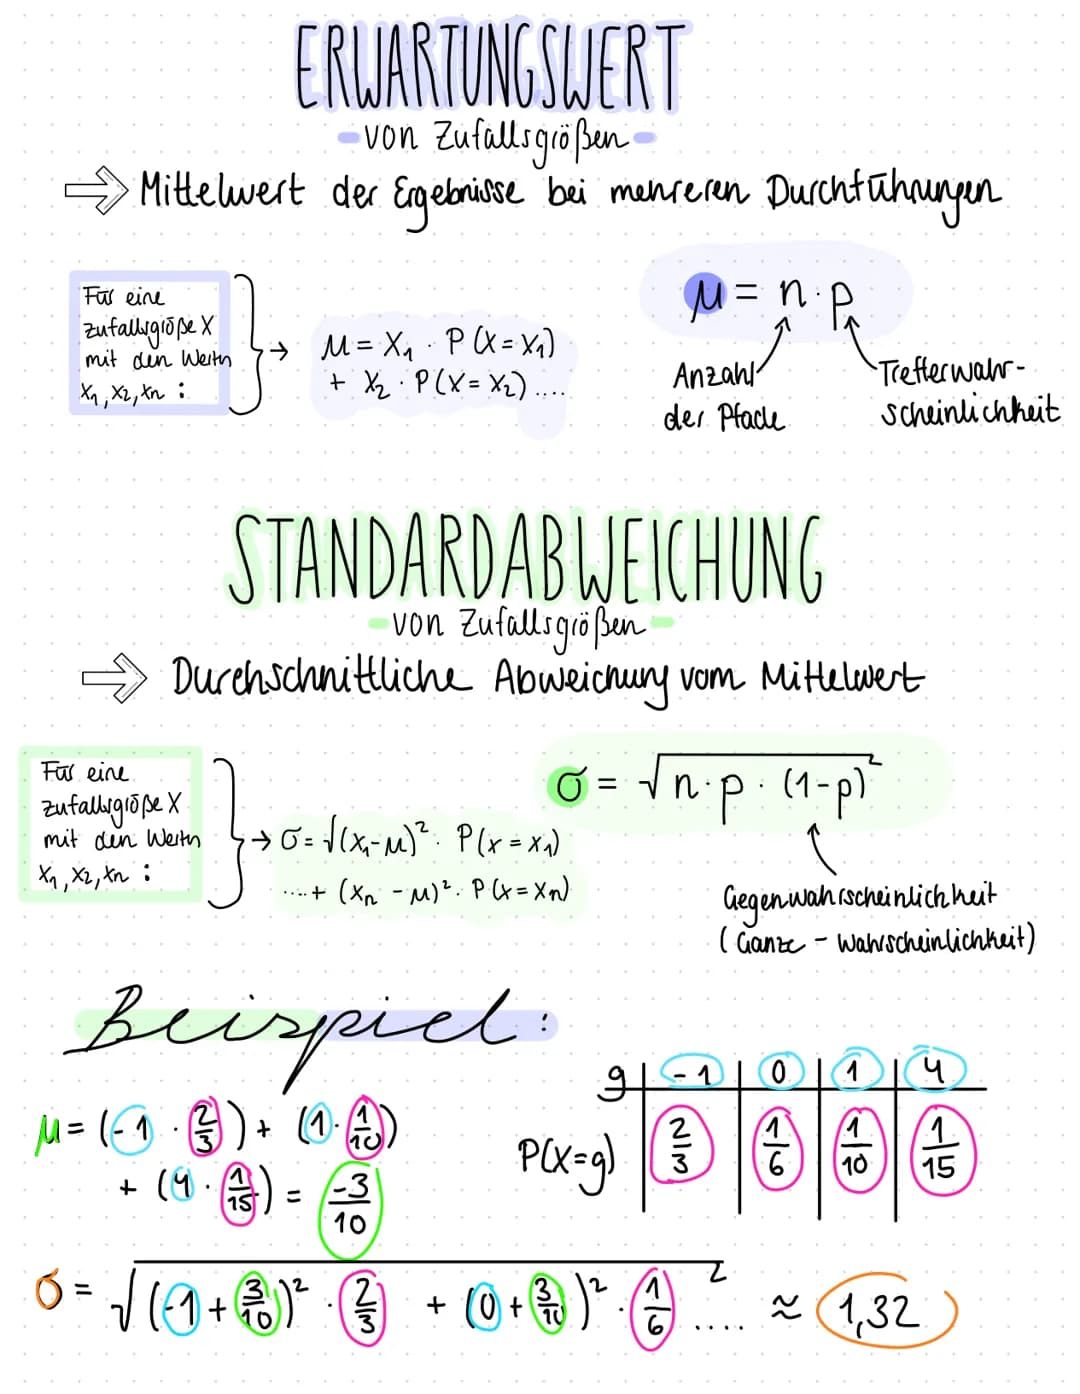 ERWARTUNGSWERT
- von Zufallsgrößen -
⇒ Mittelwert der Ergebnisse bei mehreren Durchführungen
Für eine
Zufallsgröße X
mit den Wertn
x₁, x₂, xn :
→ μ = X₁ · P(X = X₁)
+ X₂ · P(X = X₂) ....
μ = n · p
Anzahl
der Pfade
Trefferwahr-
scheinlichkeit
STANDARDABWEICHUNG
- von Zufallsgrößen -
⇒ Durchschnittliche Abweichung vom Mittelwert
Für eine
Zufallsgröße X
mit den Wertn
x₁, x₂, xn :
σ = √n · p · (1-p)
→ σ = √(x₁-μ)² · P(x = x₁)
....+ (xn - μ)² · P(x = xn)
Gegenwahrscheinlichkeit
(Ganze - Wahrscheinlichkeit)
Beispiel:
g | -1 | 0 | 1 | 4
P(X=g) | 2/3 | 1/6 | 1/10 | 1/15
μ = (-1 · 2/3) + (1 · 1/10)
+ (4 · 1/15) = -3/10
σ = √(-1 + 3/10)² · 2/3 + (0 + 3/10)² · 1/6 .... ≈ 1,32